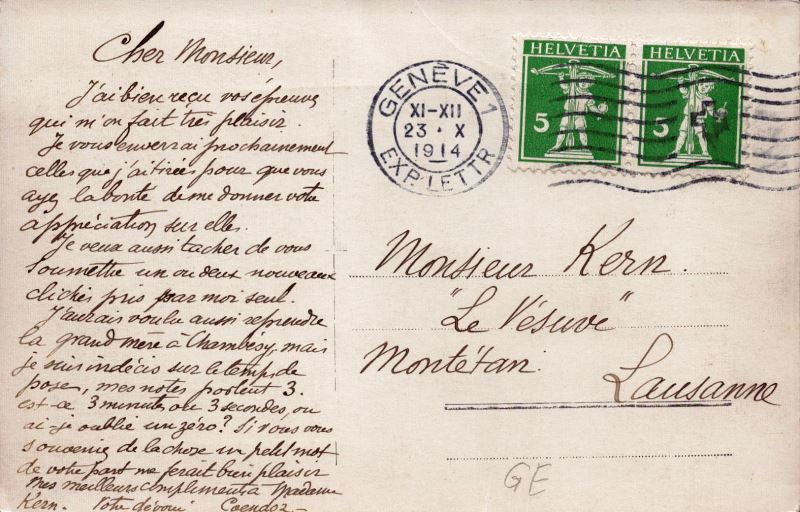 Cher Monsieur,
J'ai bien reçu vos épreuves
qui m'on fait très plaisir.
Je vous enverrai prochainement
celles que j'ai tirées pour que vous
ayez la bonté de me donner votre
appréciation sur elles.
Je veux aussi tacher de vous
soumettre un ou deux nouveaux
clichés pris par moi seul.
J'aurais voulu aussi reprendre
la grand mère à Chambésy, mais
je suis indécis sur le temps de
pose, mes notes portent 3.
est-ce 3 minutes ou 3 secondes, ou
ai-je oublié un zéro? Si vous vous
souvenez de la chose un petit mot
de votre part me ferait bien plaisir
Mes meilleurs compliments à Madame
Kern. Votre dévoué
GENÈVE 1
XI-XII
23 · X
1914
EXP. LETTR
HELVETIA
5
HELVETIA
5
Monsieur Kern.
"Le Vésuve"
Montétan.
Lausanne
GE